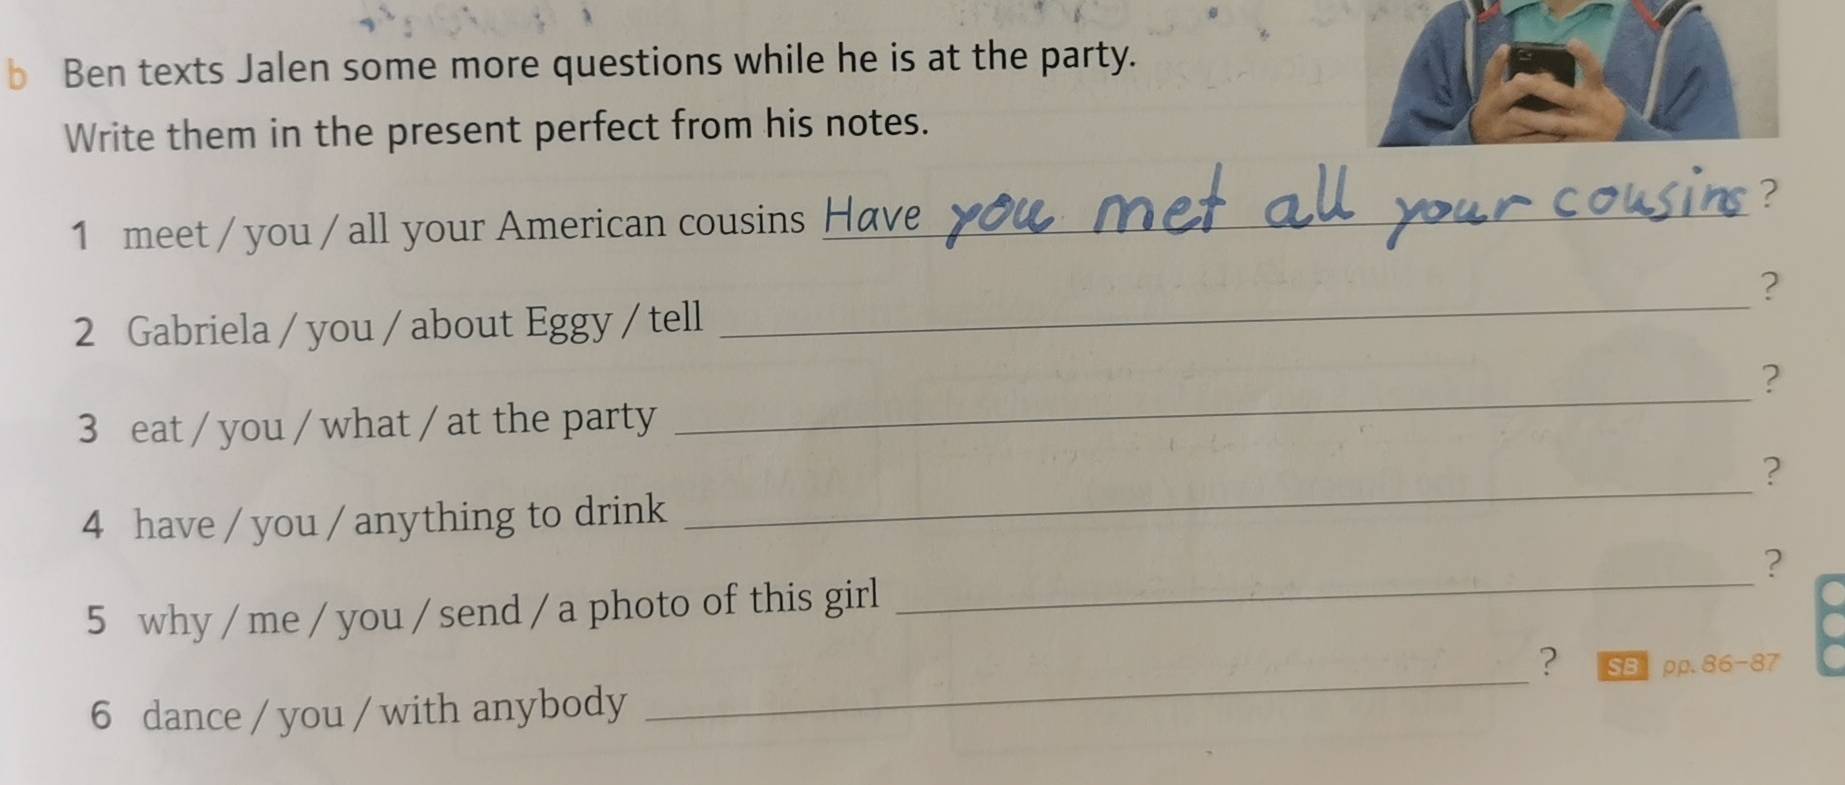 b Ben texts Jalen some more questions while he is at the party.
Write them in the present perfect from his notes.
1 meet / you / all your American cousins Have you met all your cousins ?
2 Gabriela / you / about Eggy / tell ?
3 eat / you / what / at the party ?
4 have / you / anything to drink ?
5 why / me / you / send / a photo of this girl ?
6 dance / you / with anybody ? SB pp. 86–87